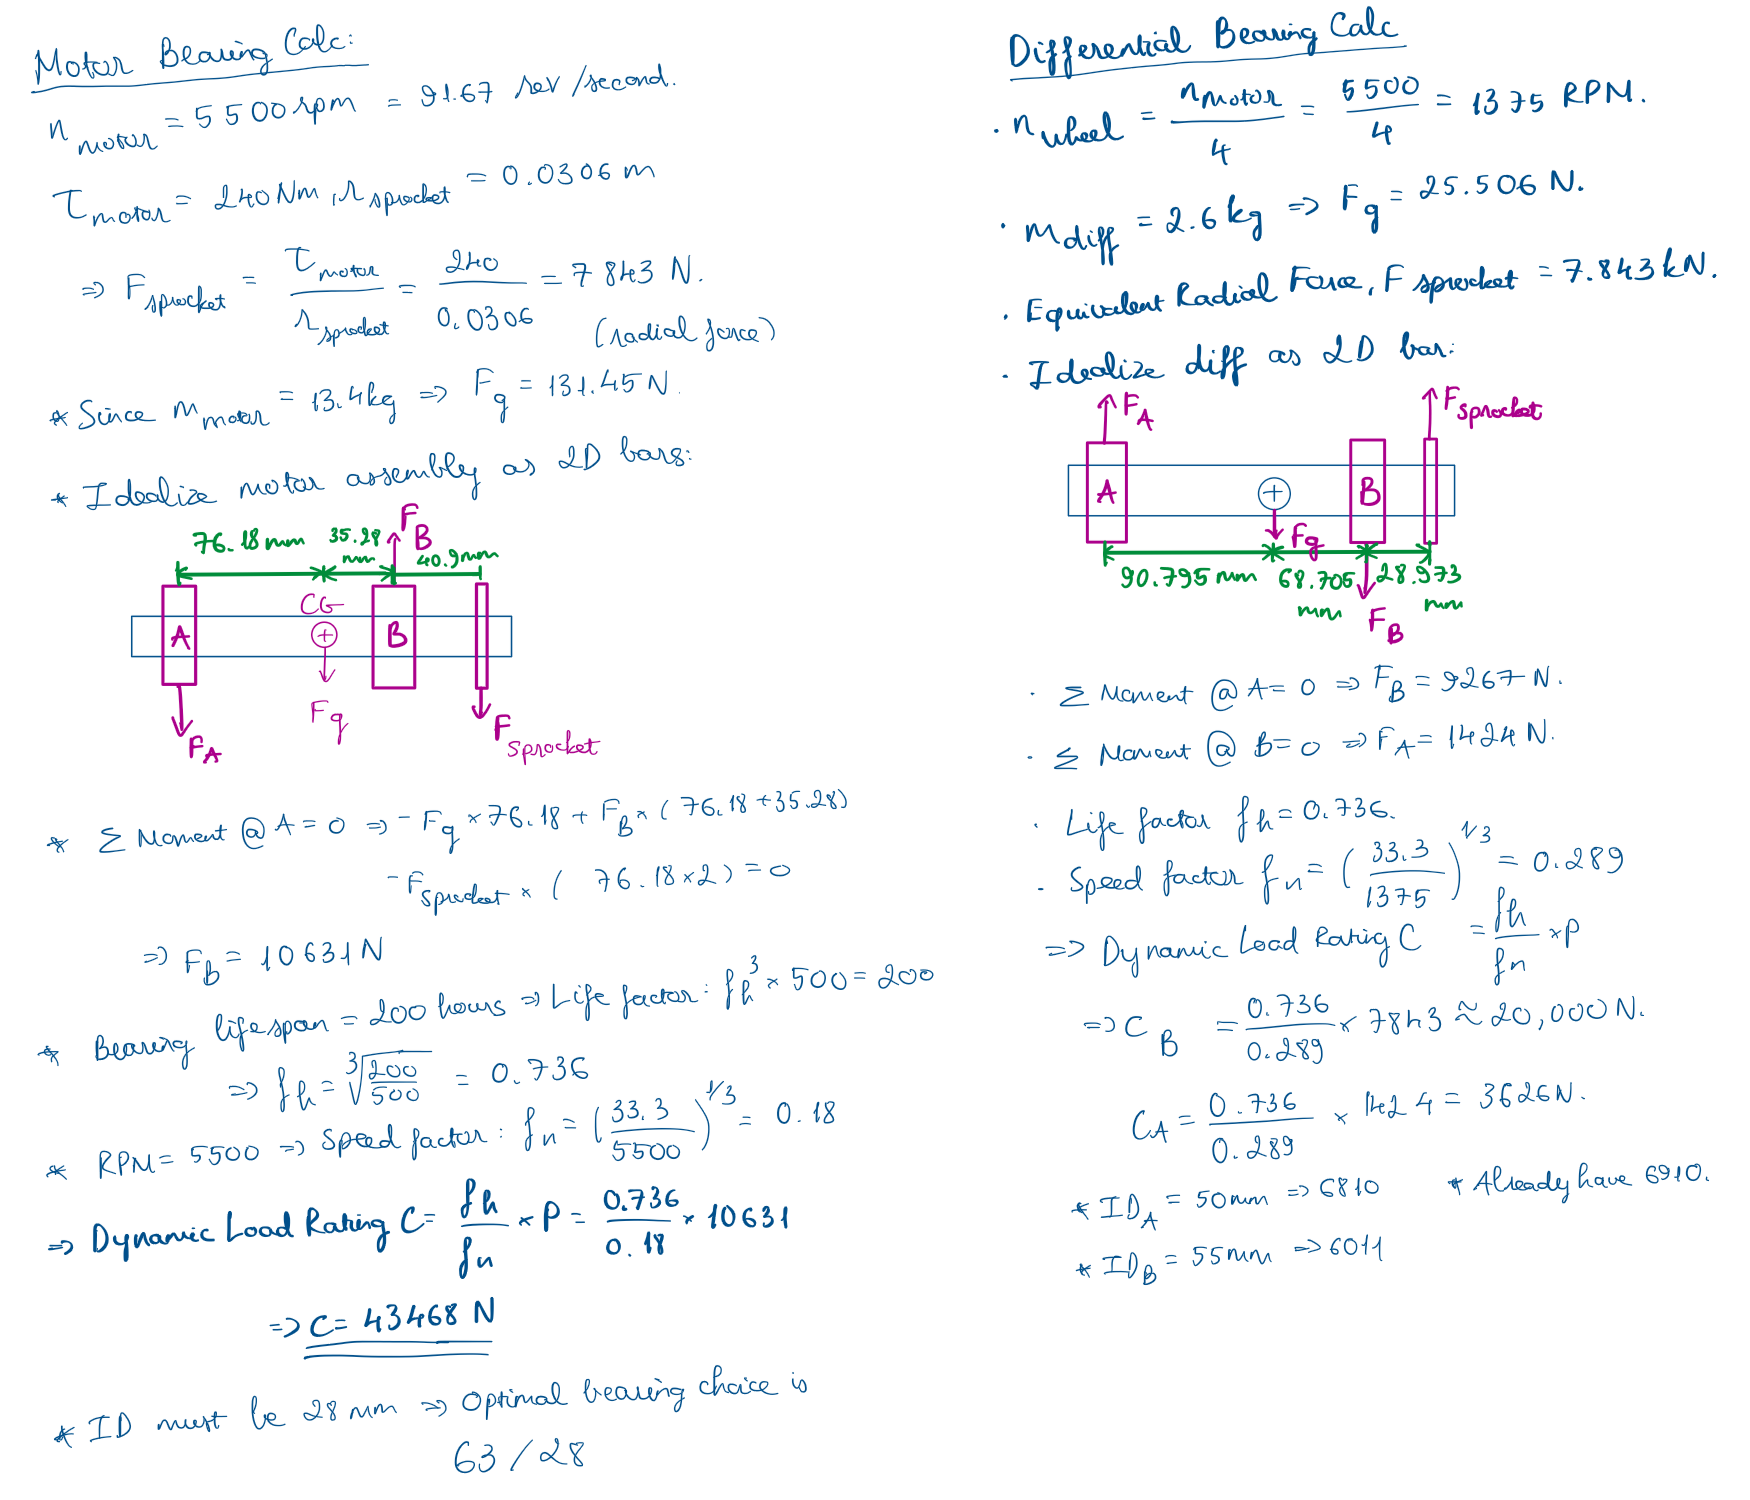 Motor Bearing Calc:
n motor = 5500 rpm = 91.67 rev/second.
τ motor = 240 Nm, r sprocket = 0.0306 m
⇒ F sprocket = τ motor / r sprocket = 240 / 0.0306 = 7843 N.
(radial force)
* Since m motor = 13.4kg ⇒ Fg = 131.45 N.
* Idealize motor assembly as 2D bars:
76.18mm 35.28 mm 40.9mm
F B
CG
A B
Fg
F A
F sprocket
* Σ Moment @ A = 0 ⇒ - Fg × 76.18 + F B × (76.18 + 35.28)
- F sprocket × ( 76.18 × 2 ) = 0
⇒ F B = 10631 N
* Bearing lifespan = 200 hours ⇒ Life factor: fh³ × 500 = 200
⇒ fh = ∛(200/500) = 0.736
* RPM = 5500 ⇒ Speed factor: fn = (33.3 / 5500)^1/3 = 0.18
⇒ Dynamic Load Rating C = fh / fn × P = 0.736 / 0.18 × 10631
⇒ C = 43468 N
* ID must be 28 mm ⇒ Optimal bearing choice is
63/28
Differential Bearing Calc
· n wheel = n motor / 4 = 5500 / 4 = 1375 RPM.
· m diff = 2.6 kg ⇒ Fg = 25.506 N.
· Equivalent Radial Force, F sprocket = 7.843 kN.
· Idealize diff as 2D bar:
F A
F sprocket
A B
Fg
90.795 mm 68.705 mm 28.973 mm
F B
· Σ Moment @ A = 0 ⇒ F B = 9267 N.
· Σ Moment @ B = 0 ⇒ F A = 1424 N.
· Life factor fh = 0.736.
· Speed factor fn = (33.3 / 1375)^1/3 = 0.289
⇒ Dynamic Load Rating C = fh / fn × P
⇒ C B = 0.736 / 0.289 × 7843 ≈ 20,000 N.
C A = 0.736 / 0.289 × 1424 = 3626 N.
* ID A = 50mm ⇒ 6810 * Already have 6910.
* ID B = 55mm ⇒ 6011